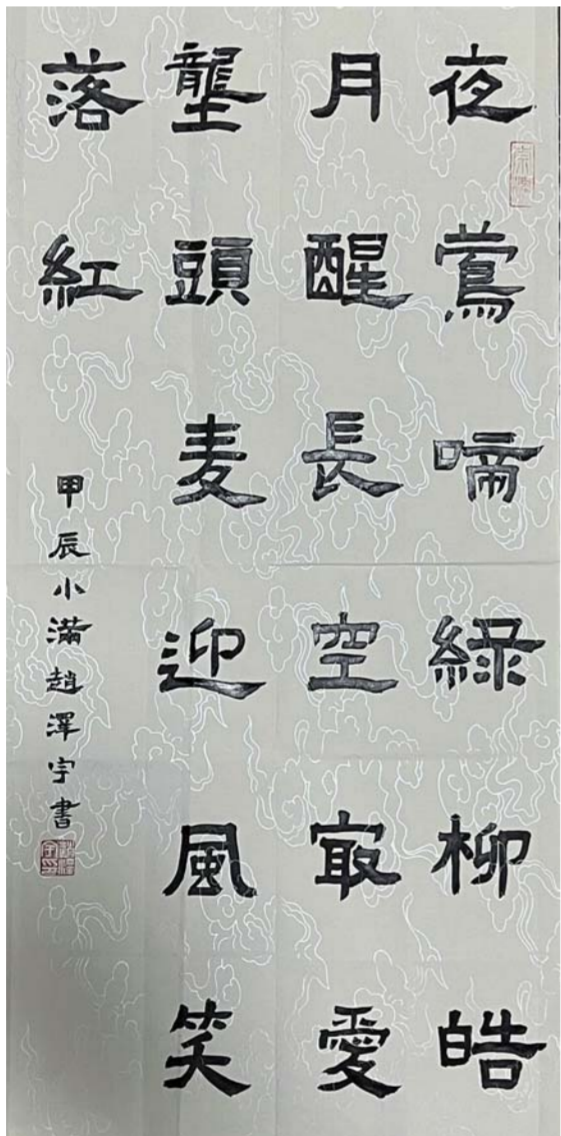 夜莺啼綠柳皓
月醒長空㝡愛
壟頭麦迎風笑
落紅
甲辰小滿趙澤宇書